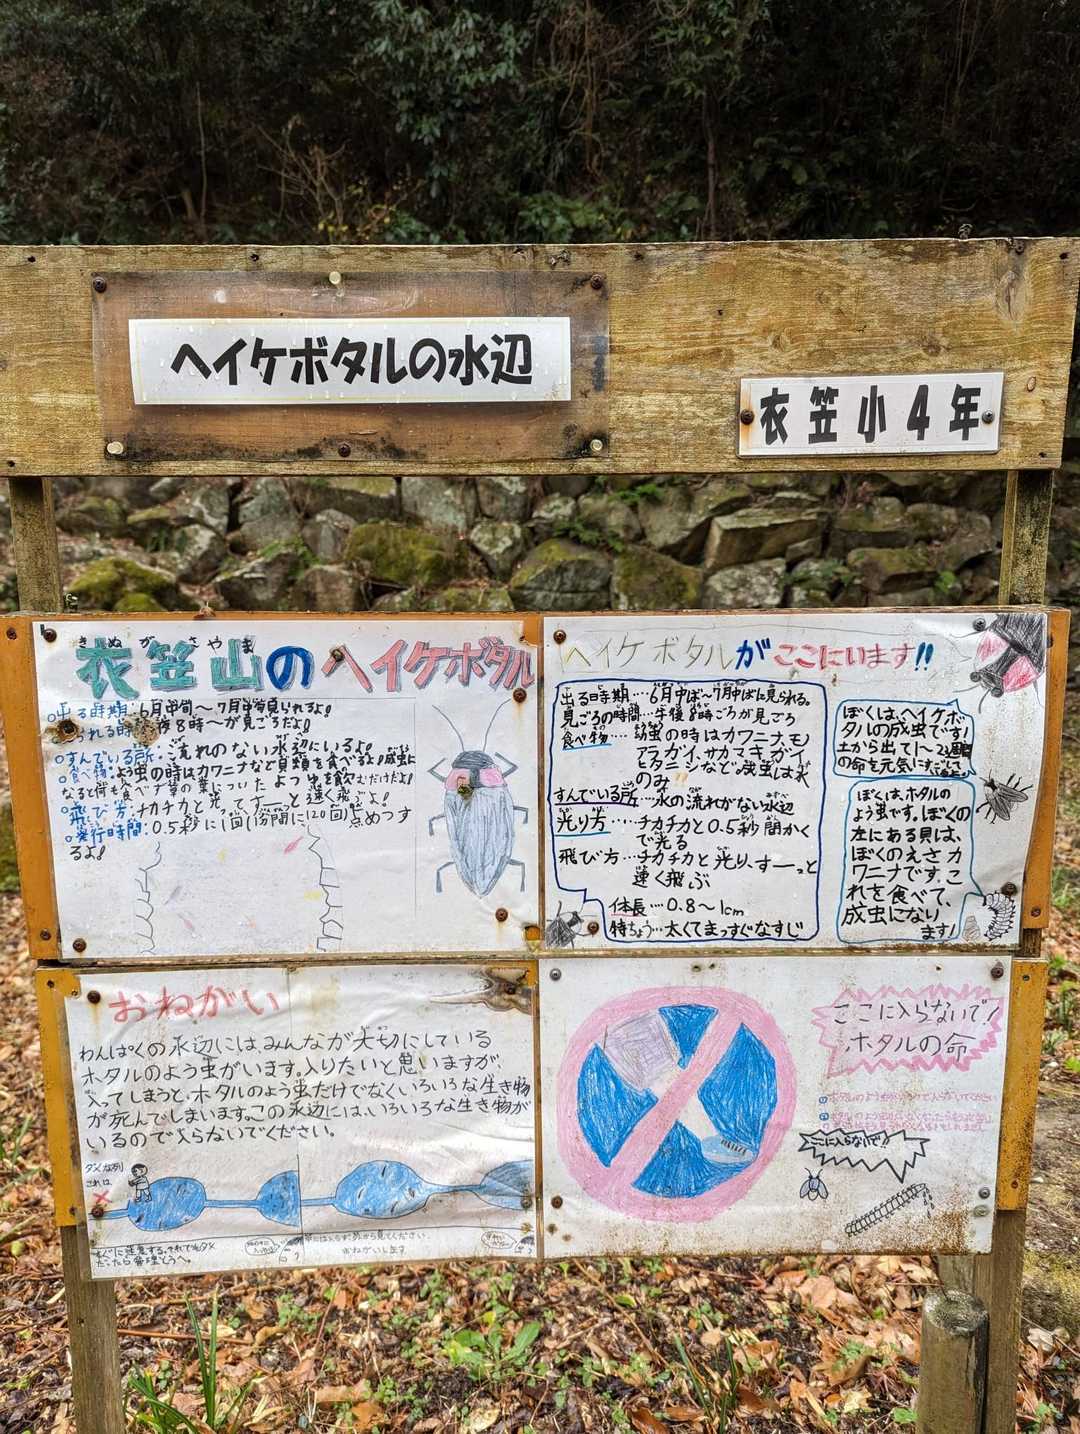 ヘイケボタルの水辺
衣笠小4年
きぬがさやま
衣笠山のヘイケボタル
○出る時期:6月中旬〜7月中旬見られるよ!
られる時 午後8時〜が見ごろだよ!
○すんでいる所:流れのない水辺にいるよ!
○食べ物:よう虫の時はカワニナなど貝類を食べるよ!成虫に
なると何も食べず草の葉についたよつゆを飲むだけだよ!
○飛び方:チカチカと光ってすーっと速く飛ぶよ!
○発行時間:0.5秒に1回(1分間に、120回)点めつす
るよ!
ヘイケボタルがここにいます!!
出る時期…6月中ば〜7月中ばに見られる。
見ごろの時間…午後8時ごろが見ごろ
食べ物…幼虫の時はカワニナ、モノ
アラガイ、サカマキガイ、
ヒタニシなど成虫は水
のみ
すんでいる所…水の流れがない水辺
光り方……チカチカと0.5秒間かく
で光る
飛び方…チカチカと光り、すーーっと
速く飛ぶ
体長…0.8〜1cm
特ちょう…太くてまっすぐなすじ
ぼくは、ヘイケボ
タルの成虫です!
土から出て1〜2週間
の命を元気にすごして
ぼくは、ホタルの
よう虫です。ぼくの
左にある貝は、
ぼくのえさカ
ワニナです。こ
れを食べて、
成虫になり
ます!
おねがい
わんぱくの水辺には、みんなが大切にしている
ホタルのよう虫がいます。入りたいと思いますが、
入ってしまうと、ホタルのよう虫だけでなくいろいろな生き物
が死んでしまいます。この水辺には、いろいろな生き物が
いるので入らないでください。
ダメな列
これは、
すぐに注意する。それでもダメ
だったら
中には入らず、外から見てください。
おねがいします
ここに入らないで!
ホタルの命
ここに入らないで!!